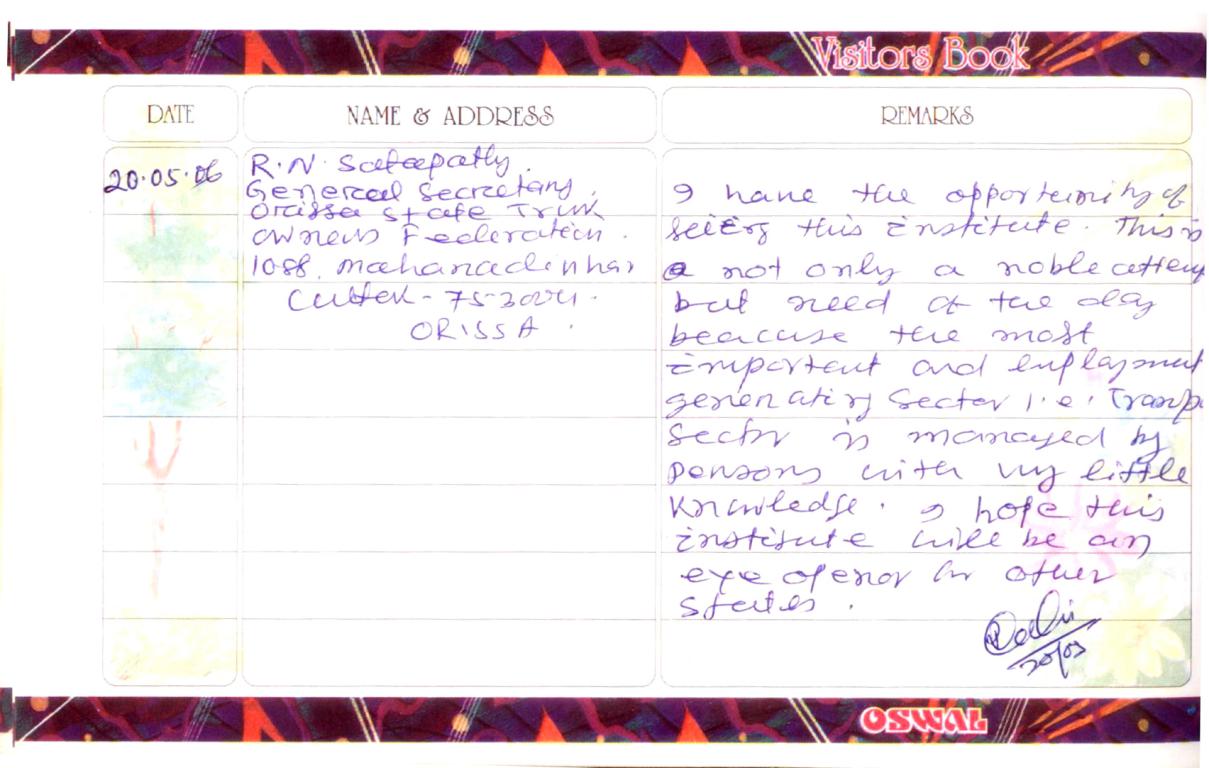 Visitors Book
DATE
NAME & ADDRESS
REMARKS
20.05.06
R.N. Satapathy.
General Secretary.
Orissa State Truck
owners Federation.
1088, Mahanadi
Cuttack - 753004.
ORISSA.
I have the opportunity of
seeing this institute. This is
a not only a noble attemp
but need of the day
beacause the most
important and employment
generating Sector i.e. Transp
Sector is managed by
persons with very little
knowledge. I hope this
institute will be an
eye openor for other
states.
20/05
OSWAL